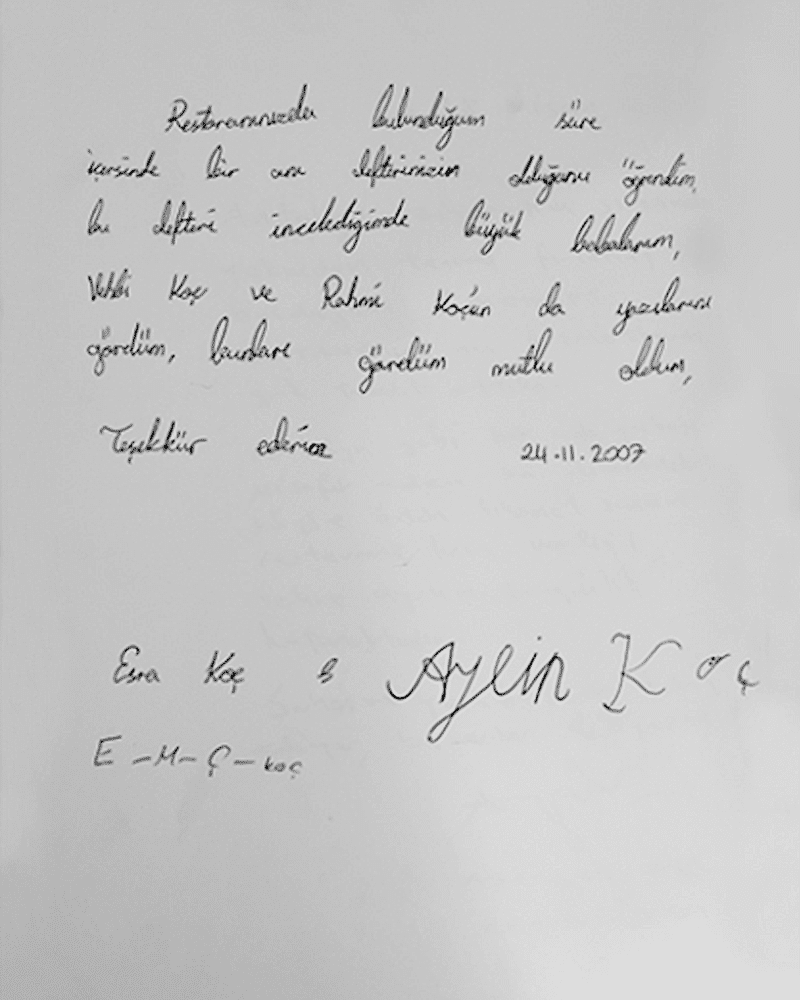 Restoranınızda bulunduğum süre
içersinde bir anı defterinizin olduğunu öğrendim,
bu defteri incelediğimde büyük babalarım,
Vehbi Koç ve Rahmi Koçun da yazılarını
gördüm, bunları gördüm mutlu oldum,
Teşekkür ederim 24.11.2007
Esra Koç Aylin Koç
E-M-Ç-koç